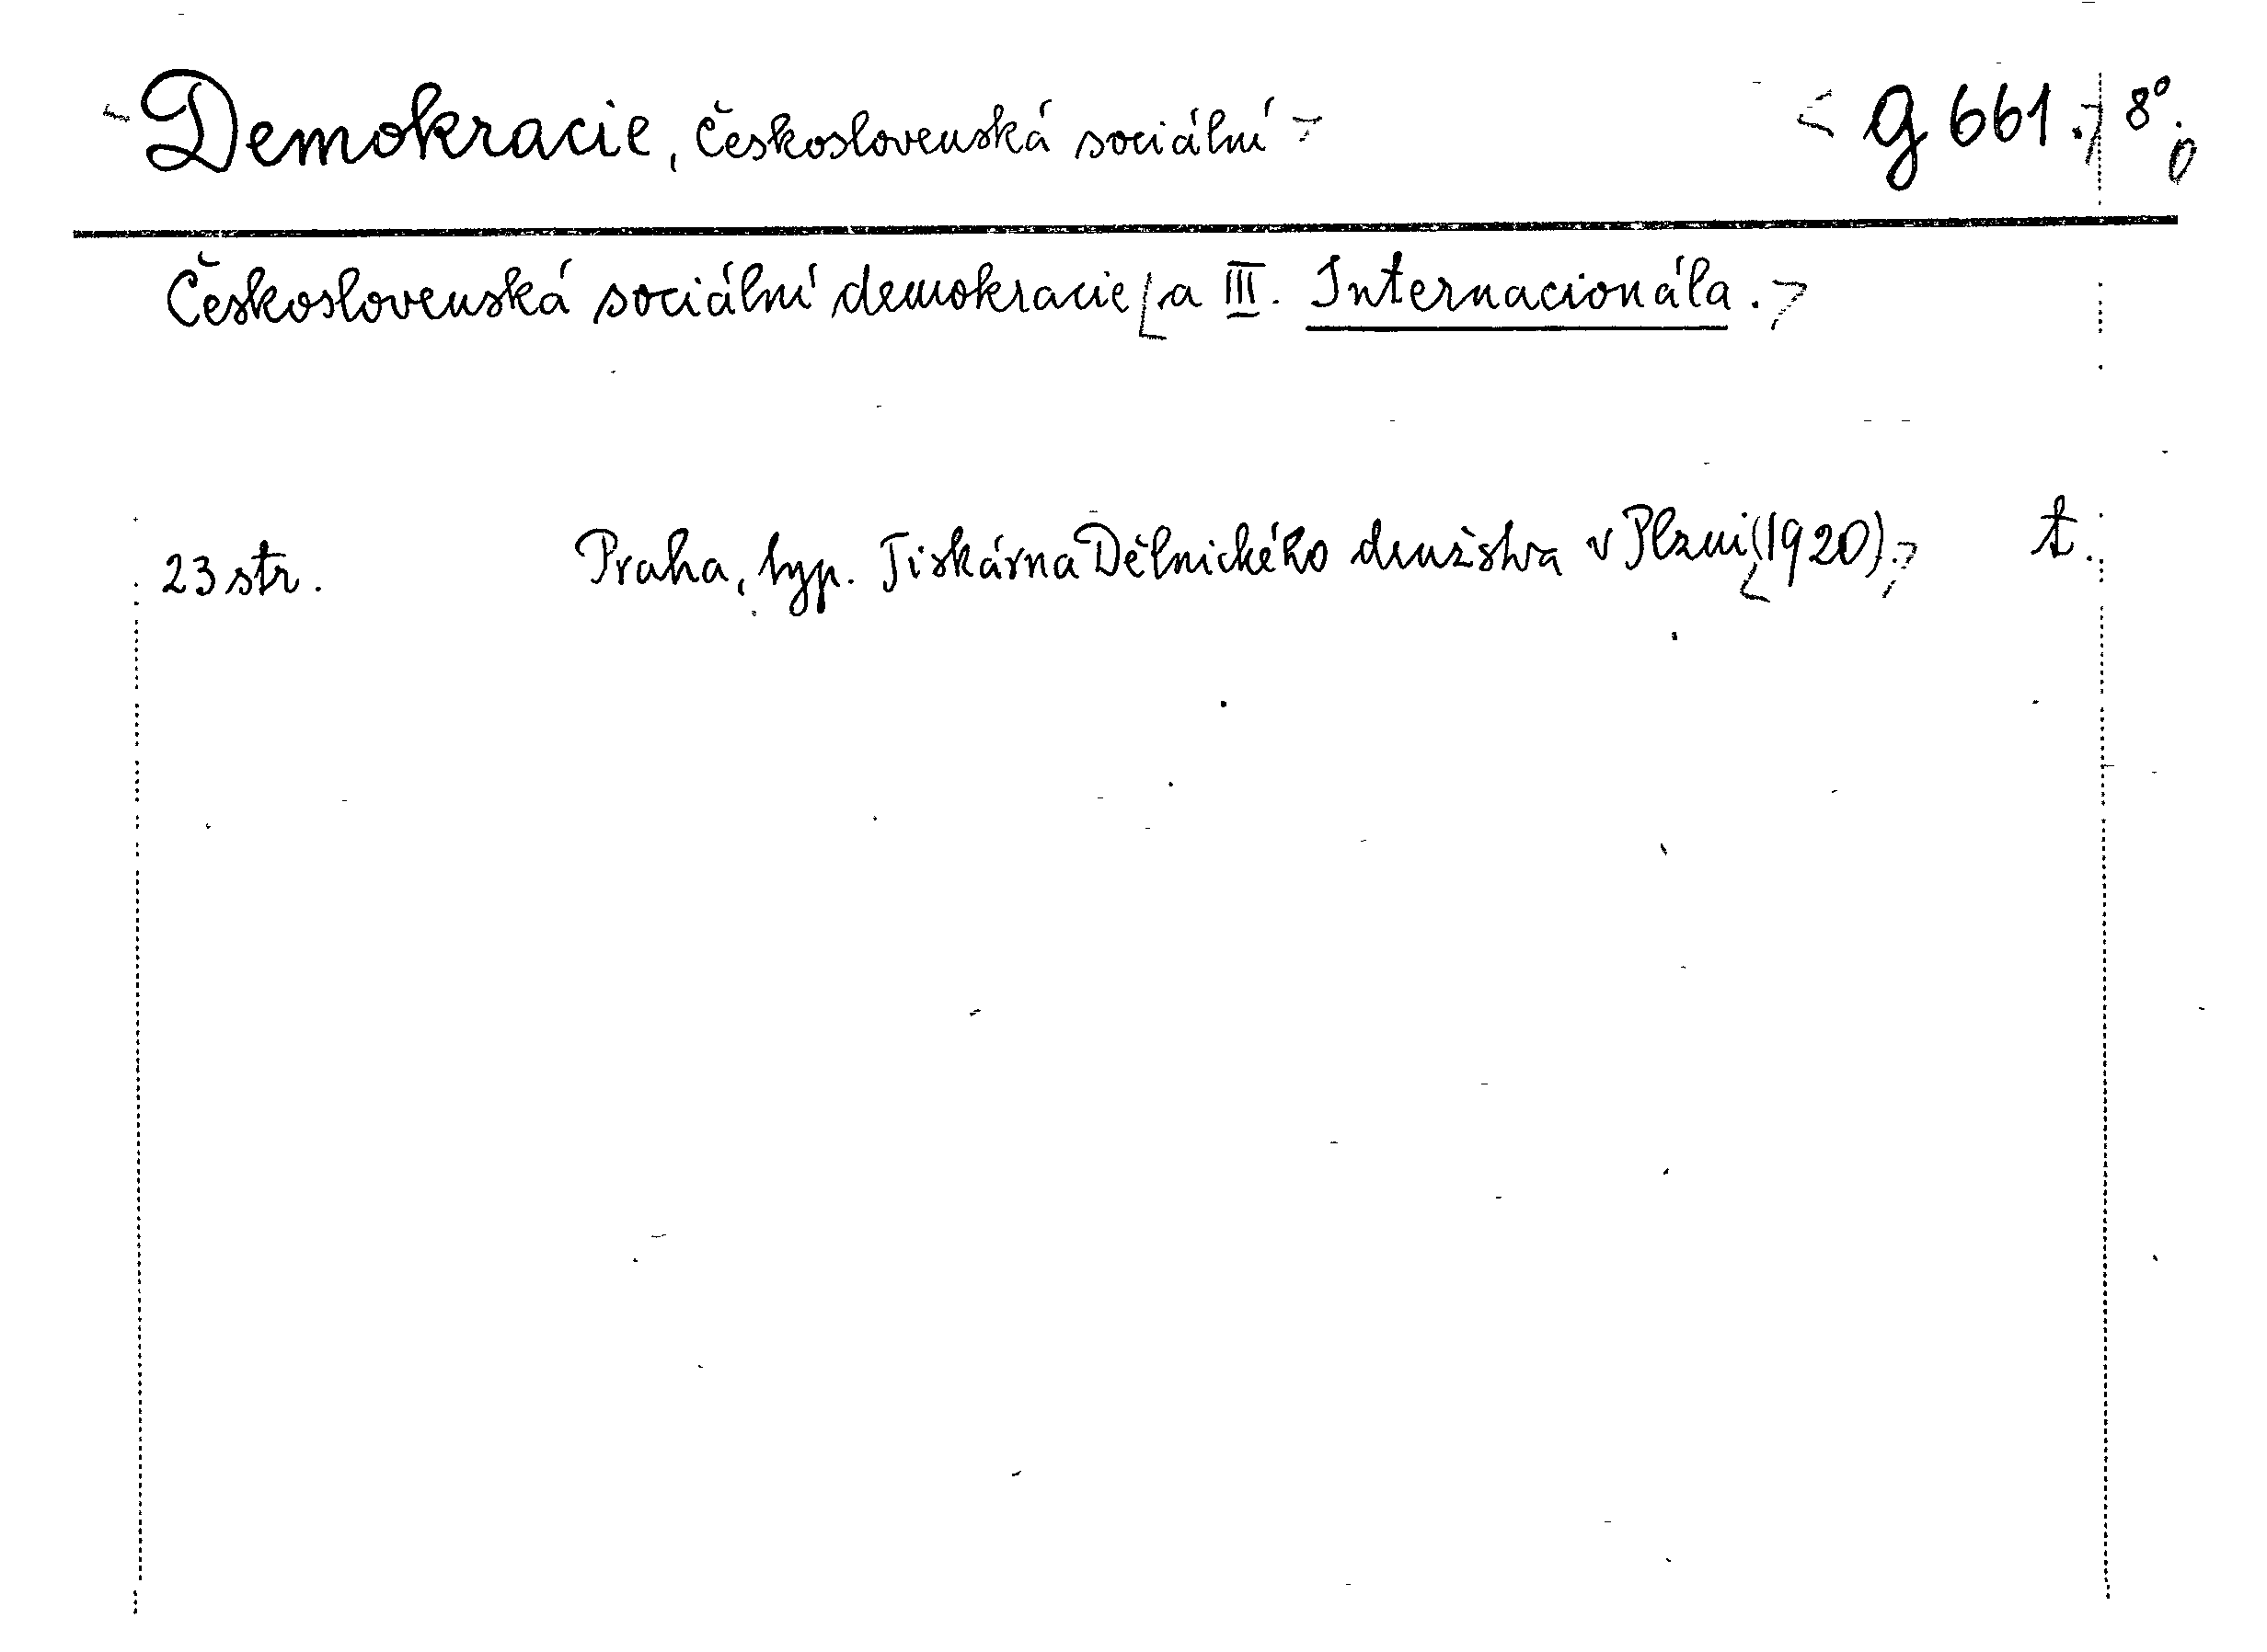 Demokracie, československá sociální g 661. 8°.
Československá sociální demokracie a III. Internacionála.
23 str. Praha, typ. Tiskárna Dělnického družstva v Plzni (1920). t.